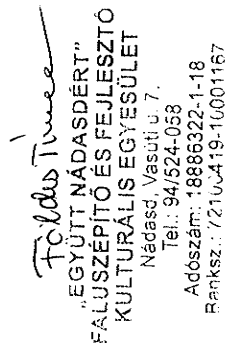 Földes Tímea
„EGYÜTT NÁDASDÉRT”
FALUSZÉPÍTŐ ÉS FEJLESZTŐ
KULTURÁLIS EGYESÜLET
Nádasd, Vasúti u. 7.
Tel.: 94/524-058
Adószám: 18886322-1-18
Banksz.: 72100419-10001167